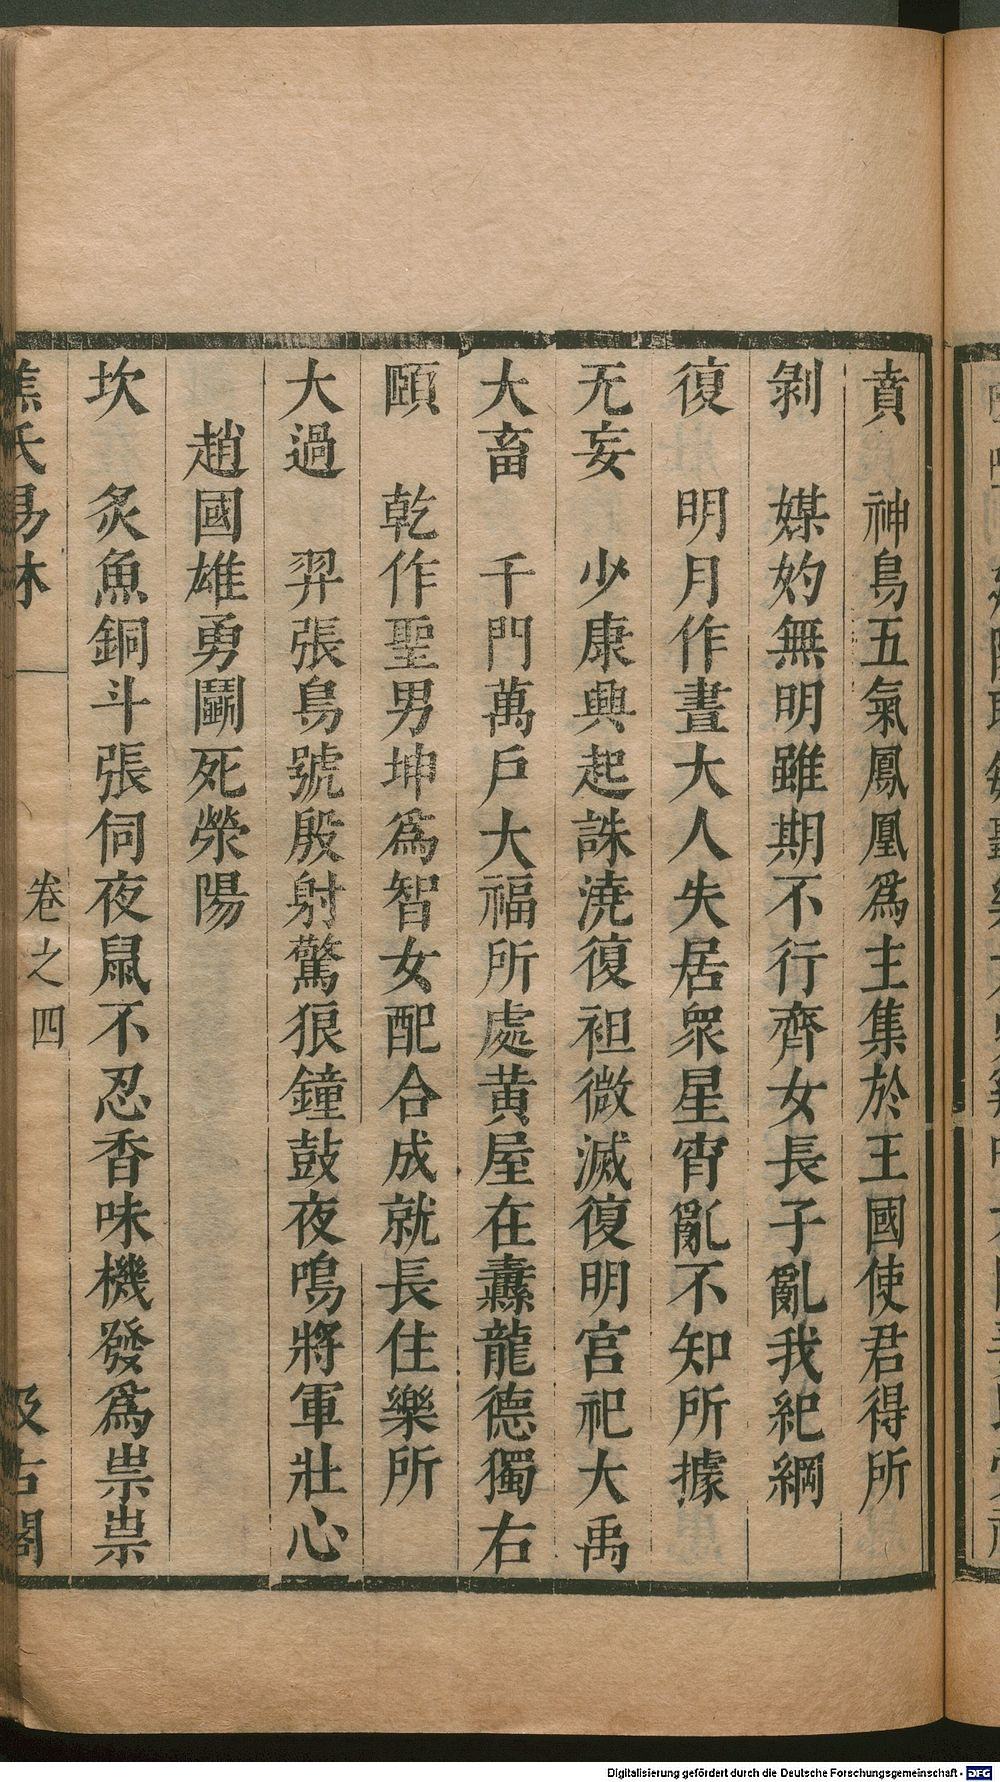 賁 神鳥五氣鳳凰爲主集於王國使君得所
剝 媒妁無明雖期不行齊女長子亂我紀綱
復 明月作晝大人失居衆星宵亂不知所據
无妄 少康興起誅澆復祖微滅復明官祀大禹
大畜 千門萬戶大福所處黄屋在纛龍德獨右
頤 乾作聖男坤爲智女配合成就長住樂所
大過 羿張鳥號殷射驚狼鐘鼓夜鳴將軍壯心
趙國雄勇鬭死滎陽
坎 炙魚銅斗張伺夜鼠不忍香味機發爲祟祟
焦氏易林 卷之四 汲古閣
Digitalisierung gefördert durch die Deutsche Forschungsgemeinschaft - DFG